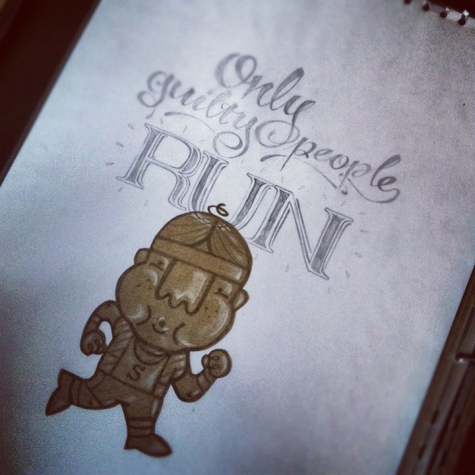 Only
guilty people
RUN
S